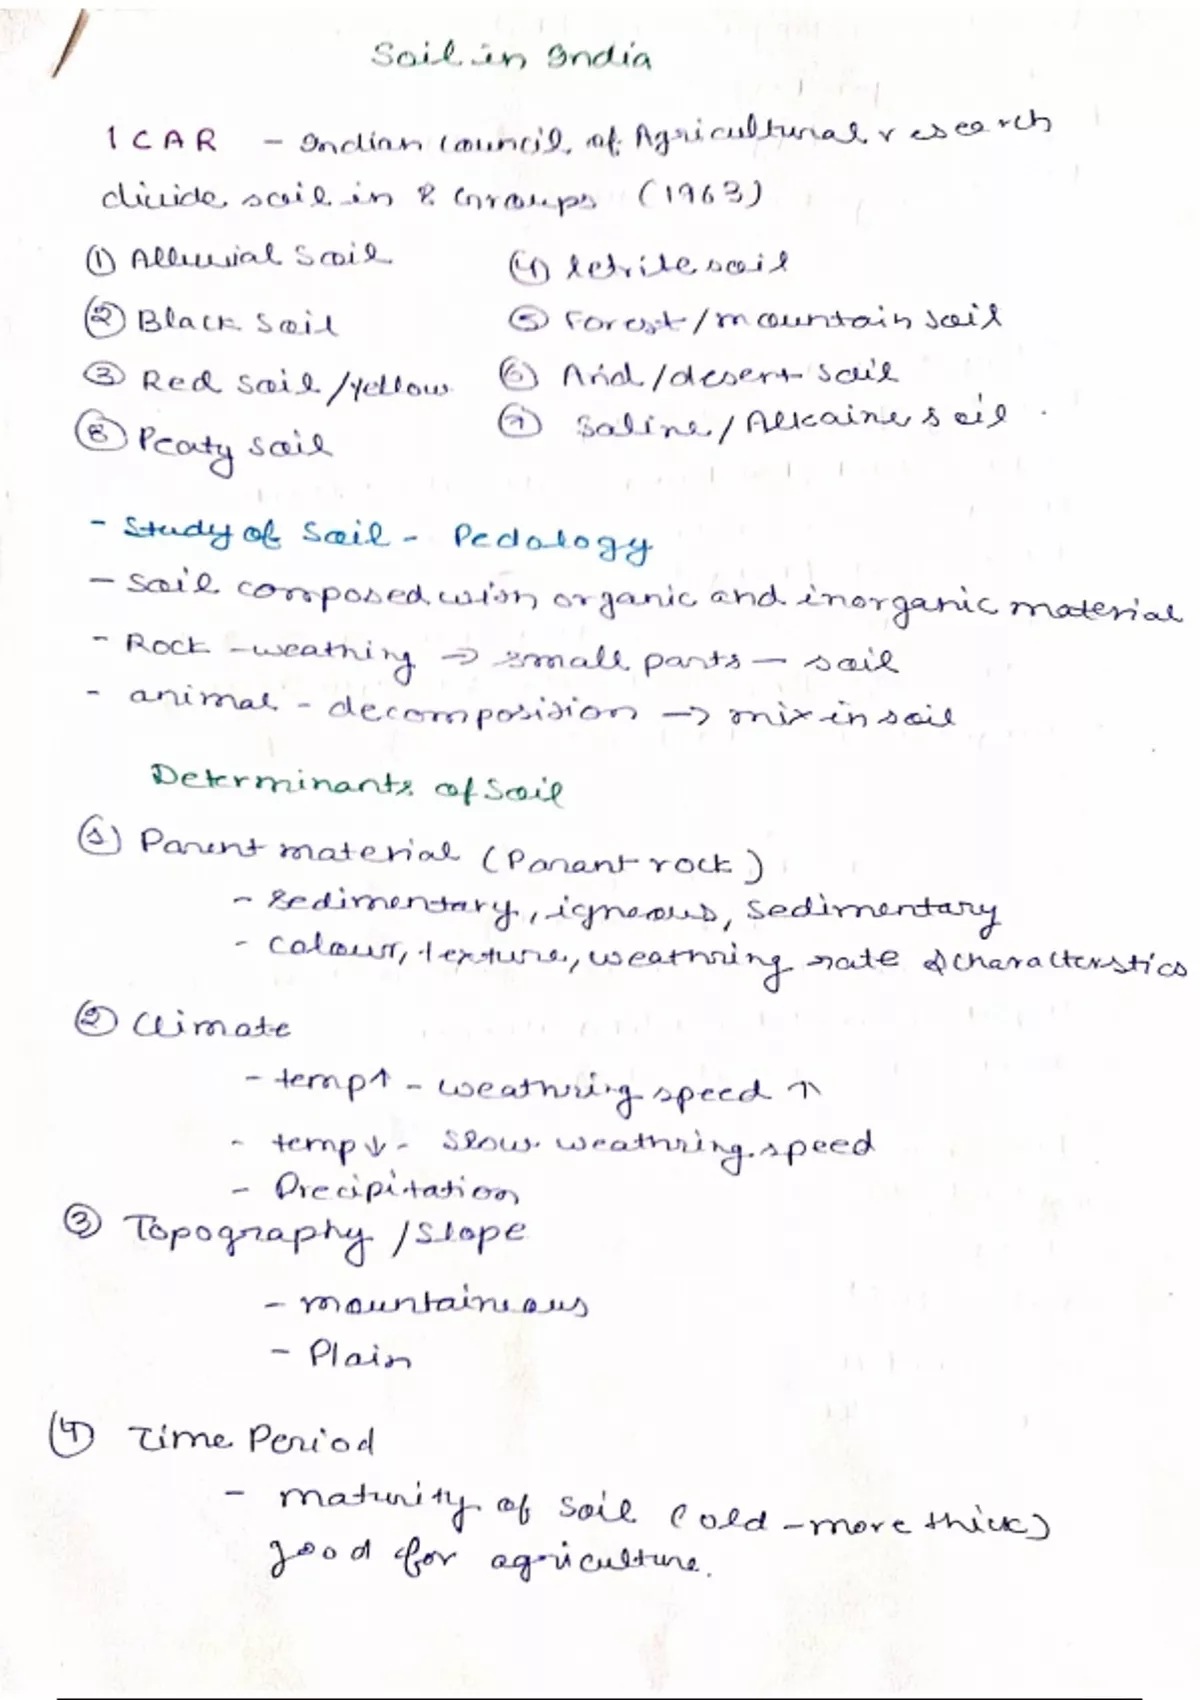 Soil in India
ICAR - Indian Council of Agricultural research
divide soil in 8 Groups (1963)
① Alluvial Soil
④ letrite soil
② Black Soil
⑤ Forest/mountain soil
③ Red soil/yellow
⑥ Arid/desert soil
⑦ Saline/Alkaine soil
⑧ Peaty soil
- Study of Soil - Pedology
- soil composed with organic and inorganic material
- Rock - weathing → small parts - soil
- animal - decomposition → mix in soil
Determinants of Soil
① Parent material (Parant rock)
- sedimentary, igneous, sedimentary
- colour, texture, weathring rate & characterstics
② Climate
- temp↑ - weathring speed ↑
- temp↓ - slow weathring speed
- Precipitation
③ Topography/Slope
- mountaineous
- Plain
④ Time Period
- maturity of soil (old - more thick)
good for agriculture.